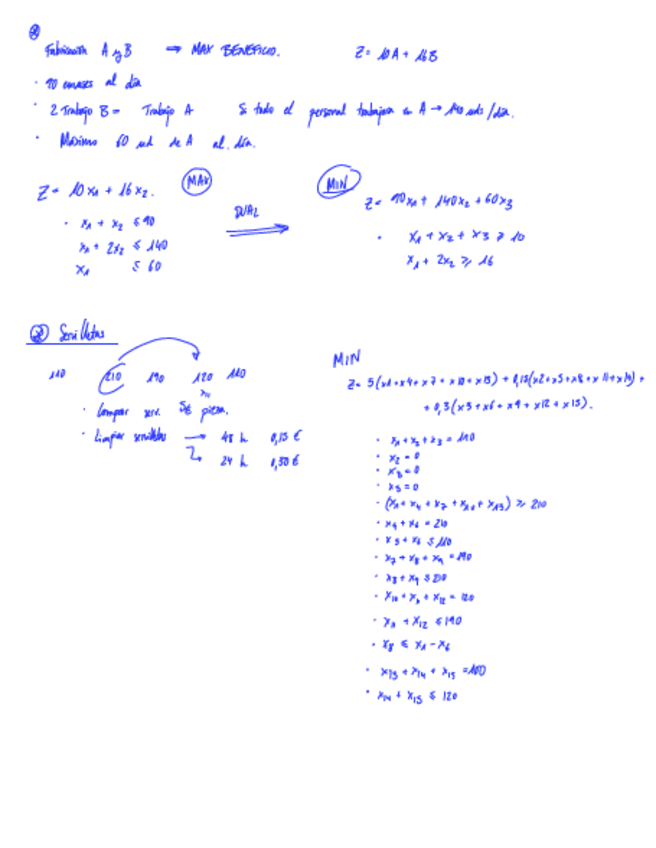 Fabricación A y B → MAX BENEFICIO. Z = 10A + 16B
· 90 envases al día
· 2 Trabajo B = Trabajo A Si todo el personal trabajara en A → 140 uds/día.
· Máximo 60 ud de A al día.
Z = 10x1 + 16x2. MAX
· x1 + x2 ≤ 90
x1 + 2x2 ≤ 140
x1 ≤ 60
DUAL
MIN
Z = 90x1 + 140x2 + 60x3
· x1 + x2 + x3 ≥ 10
x1 + 2x2 ≥ 16
Servilletas
110 210 190 120 110
· Comprar serv. 5€ pieza.
· Limpiar servilletas → 48 h 0,15 €
24 h 0,30 €
MIN
Z = 5(x1+x4+x7+x10+x13) + 0,15(x2+x5+x8+x11+x14) +
+ 0,3(x3+x6+x9+x12+x15).
· x1 + x2 + x3 = 110
· x2 = 0
· x3 = 0
· x5 = 0
· (x1 + x4 + x7 + x10 + x13) ≥ 210
· x4 + x6 = 210
· x5 + x6 ≤ 110
· x7 + x8 + x9 = 190
· x8 + x9 ≤ 210
· x10 + x11 + x12 = 120
· x12 ≤ 190
· x8 ≤ x1 - x6
· x13 + x14 + x15 = 100
· x14 + x15 ≤ 120